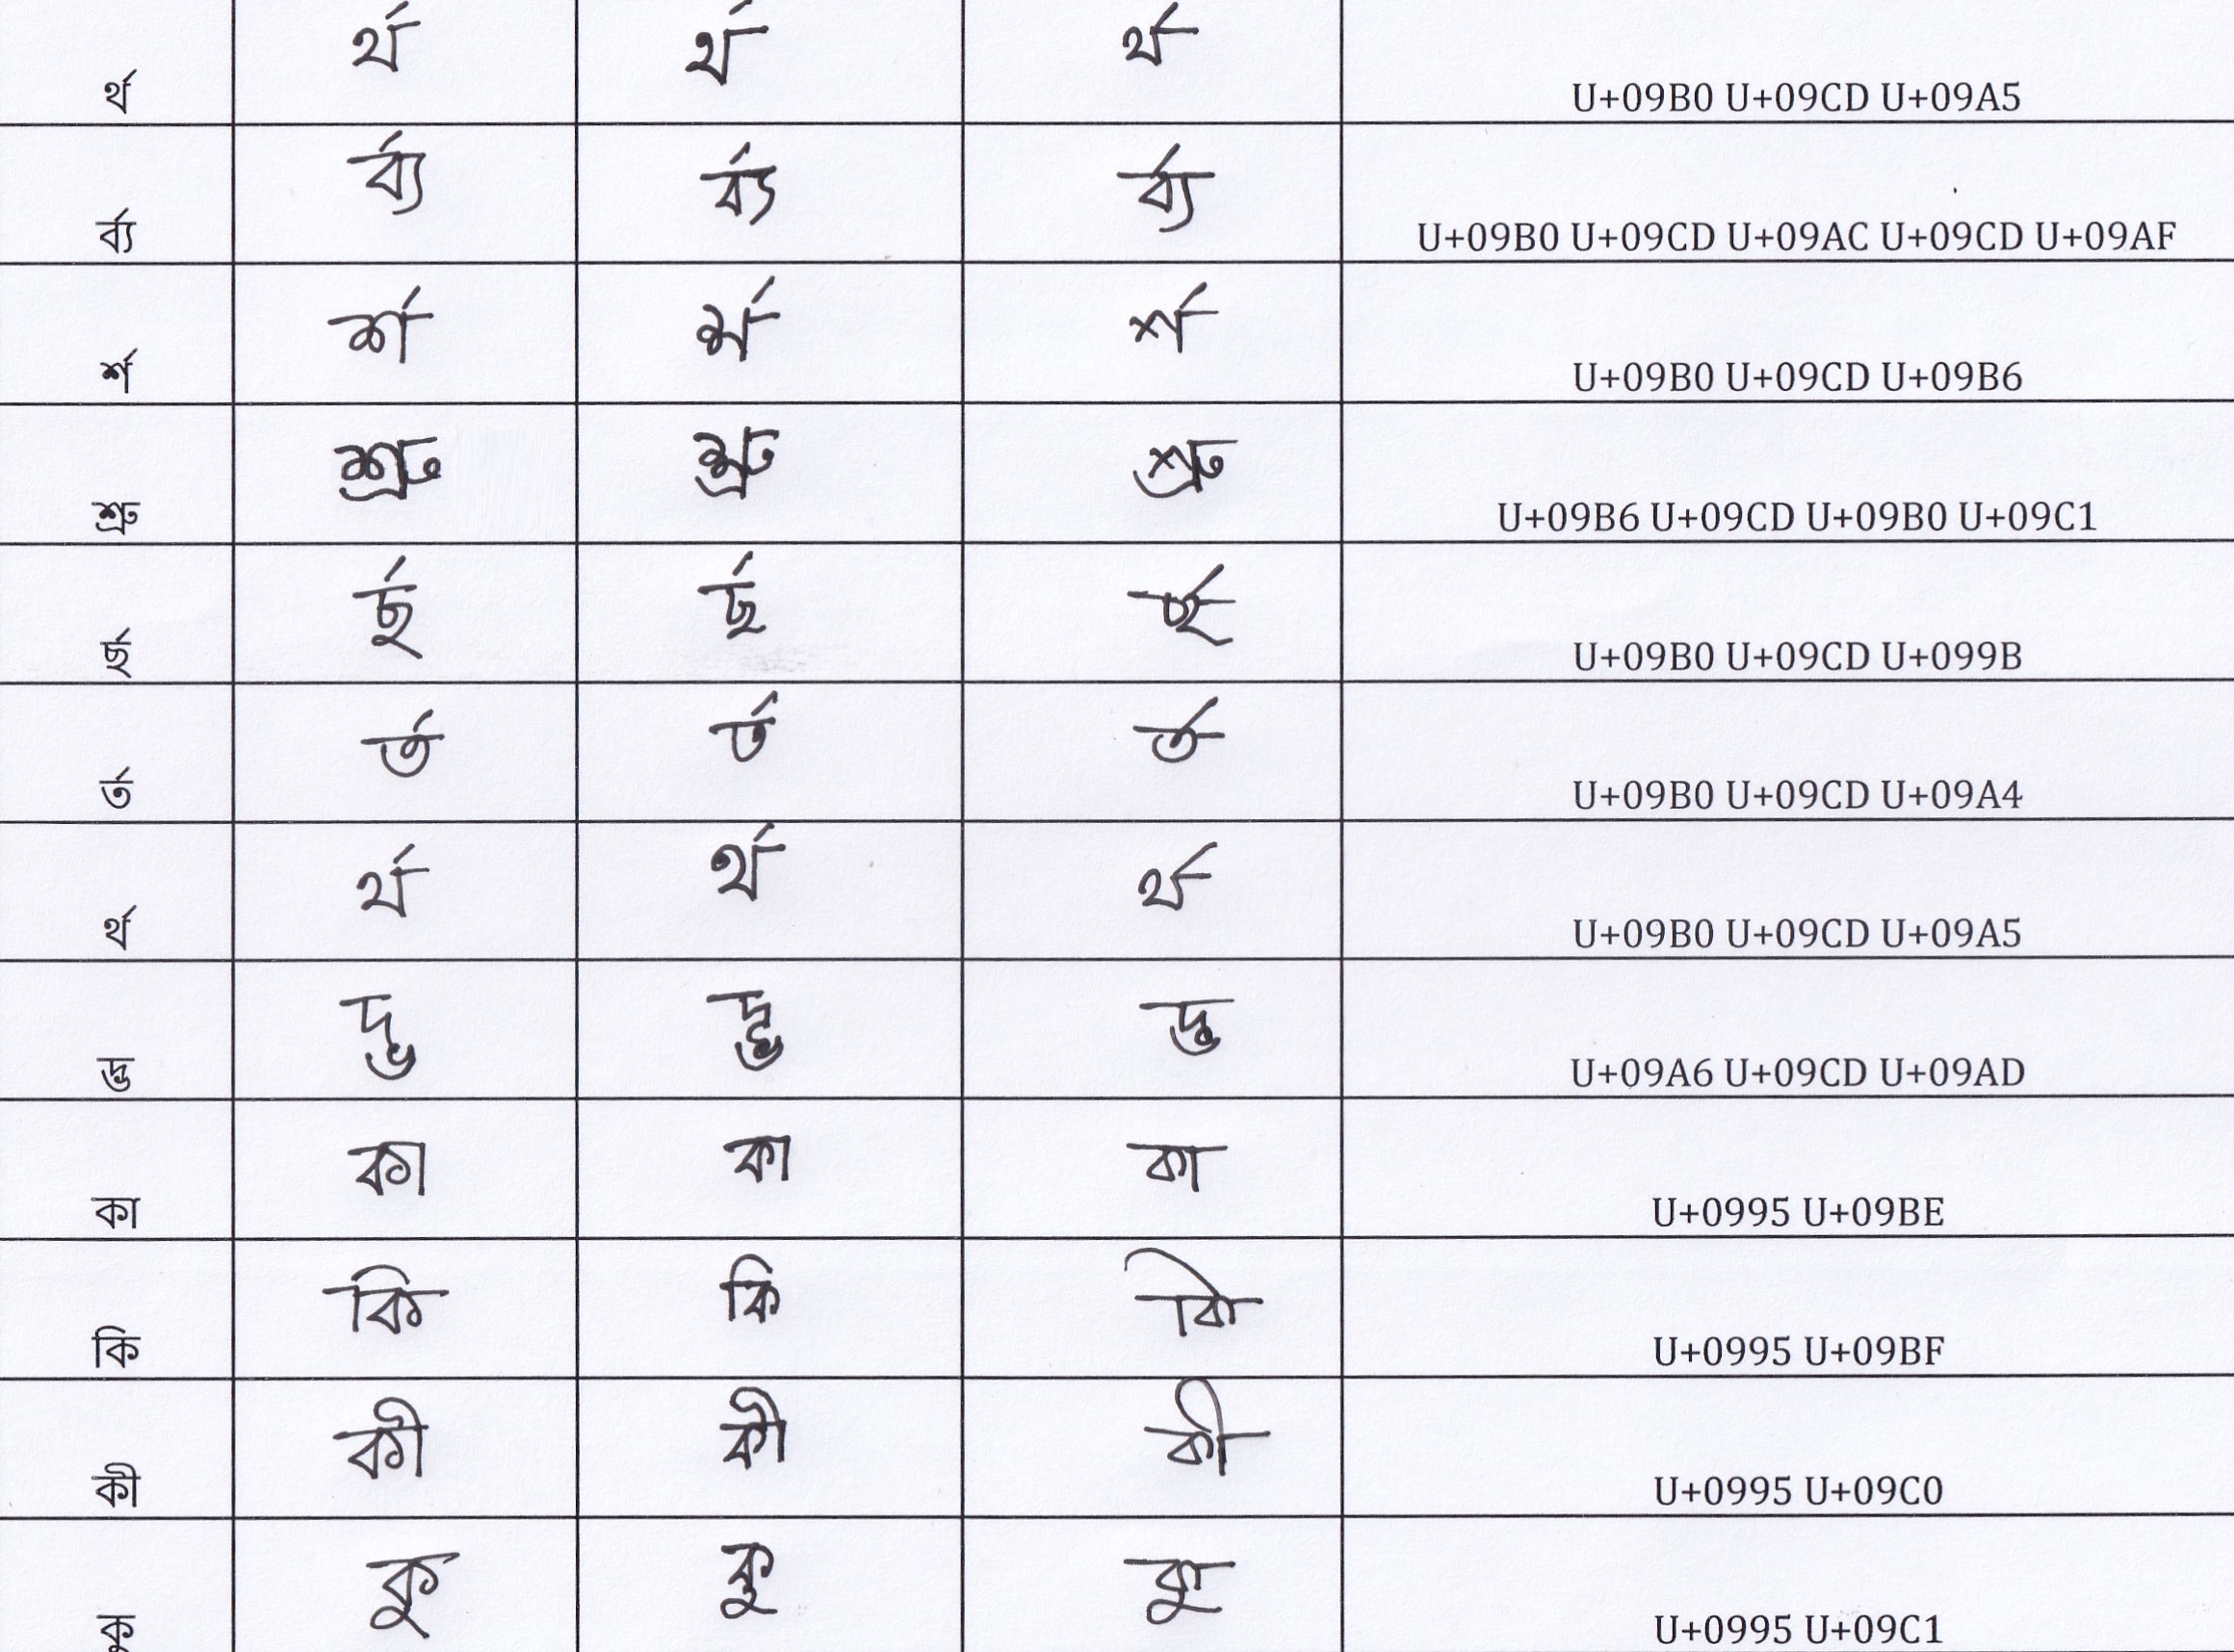 র্থ র্থ র্থ র্থ U+09B0 U+09CD U+09A5
র্ব্য র্ব্য র্ব্য র্ব্য U+09B0 U+09CD U+09AC U+09CD U+09AF
র্শ র্শ র্শ র্শ U+09B0 U+09CD U+09B6
শ্রু শ্রু শ্রু শ্রু U+09B6 U+09CD U+09B0 U+09C1
র্ছ র্ছ র্ছ র্ছ U+09B0 U+09CD U+099B
র্ত র্ত র্ত র্ত U+09B0 U+09CD U+09A4
র্থ র্থ র্থ র্থ U+09B0 U+09CD U+09A5
দ্ভ দ্ভ দ্ভ দ্ভ U+09A6 U+09CD U+09AD
কা কা কা কা U+0995 U+09BE
কি কি কি কি U+0995 U+09BF
কী কী কী কী U+0995 U+09C0
কু কু কু কু U+0995 U+09C1